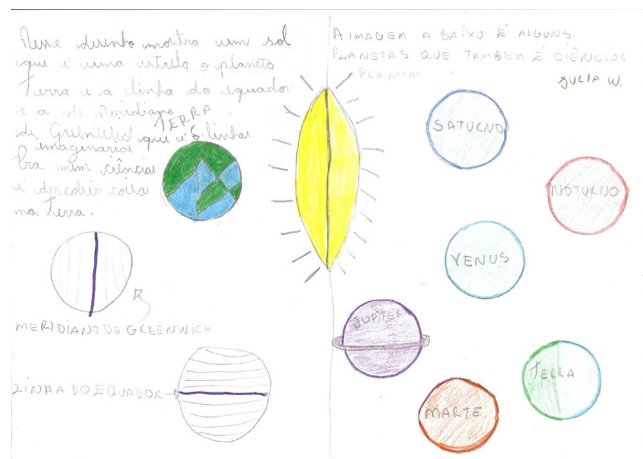 Nesse desenho mostra um sol
que é uma estrela o planeta
Terra e a linha do equador
e a de Meridiano
de Greenwich que é linhas
imaginarias
Pra mim ciências
é descobrir coisa
na Terra.
TERRA
MERIDIANO DE GREENWICH
LINHA DO EQUADOR
A IMAGEM A BAIXO É ALGUNS
PLANETAS QUE TAMBEM É CIÊNCIAS
PRA MIM
JULIA W.
SATURNO
NOTURNO
VENUS
JUPTER
TERRA
MARTE